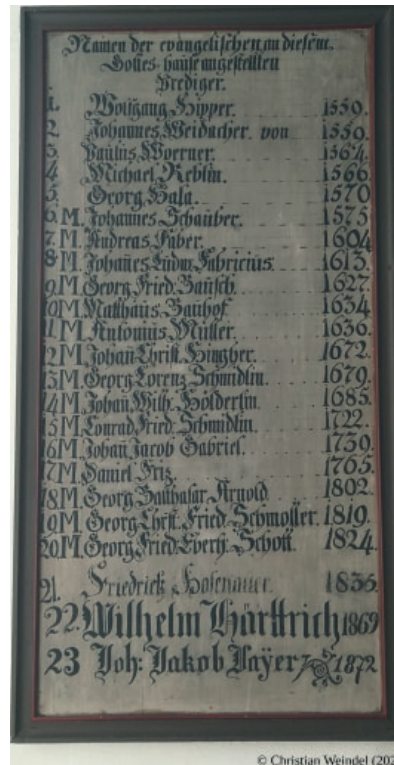 Namen der evangelischen an diesem
Gottes-hause angestellten
Prediger.
1. Wolfgang Hipper. 1550.
2. Johannes Weidacher von 1559.
3. Paulus Woerner. 1564.
4. Michael Reblin. 1566.
5. Georg Hala. 1570
6. M. Johannes Schauber. 1575
7. M. Andreas Faber. 1604
8. M. Johañes Ludw. Fabricius. 1613.
9. M. Georg Fried. Bausch. 1627.
10. M. Matthäus Bauhof. 1634
11 M. Antonius Müller. 1636.
12 M. Johañ Christ. Hingher. 1672.
13 M. Georg Lorenz Schmidlin. 1679.
14 M. Johañ Wilh. Hölderlin. 1685.
15 M. Conrad Fried. Schmidlin. 1722.
16 M. Johañ Jacob Gabriel. 1739.
17 M. Daniel Friz. 1765.
18 M. Georg Balthasar Arnold. 1802.
19 M. Georg Christ. Fried. Schmoller. 1819.
20. M. Georg Fried. Eberh. Schott. 1824.
21. Friedrich Hosenauer. 1836.
22. Wilhelm Härttrich 1869
23 Joh: Jakob Layer 1872
© Christian Weindel (202